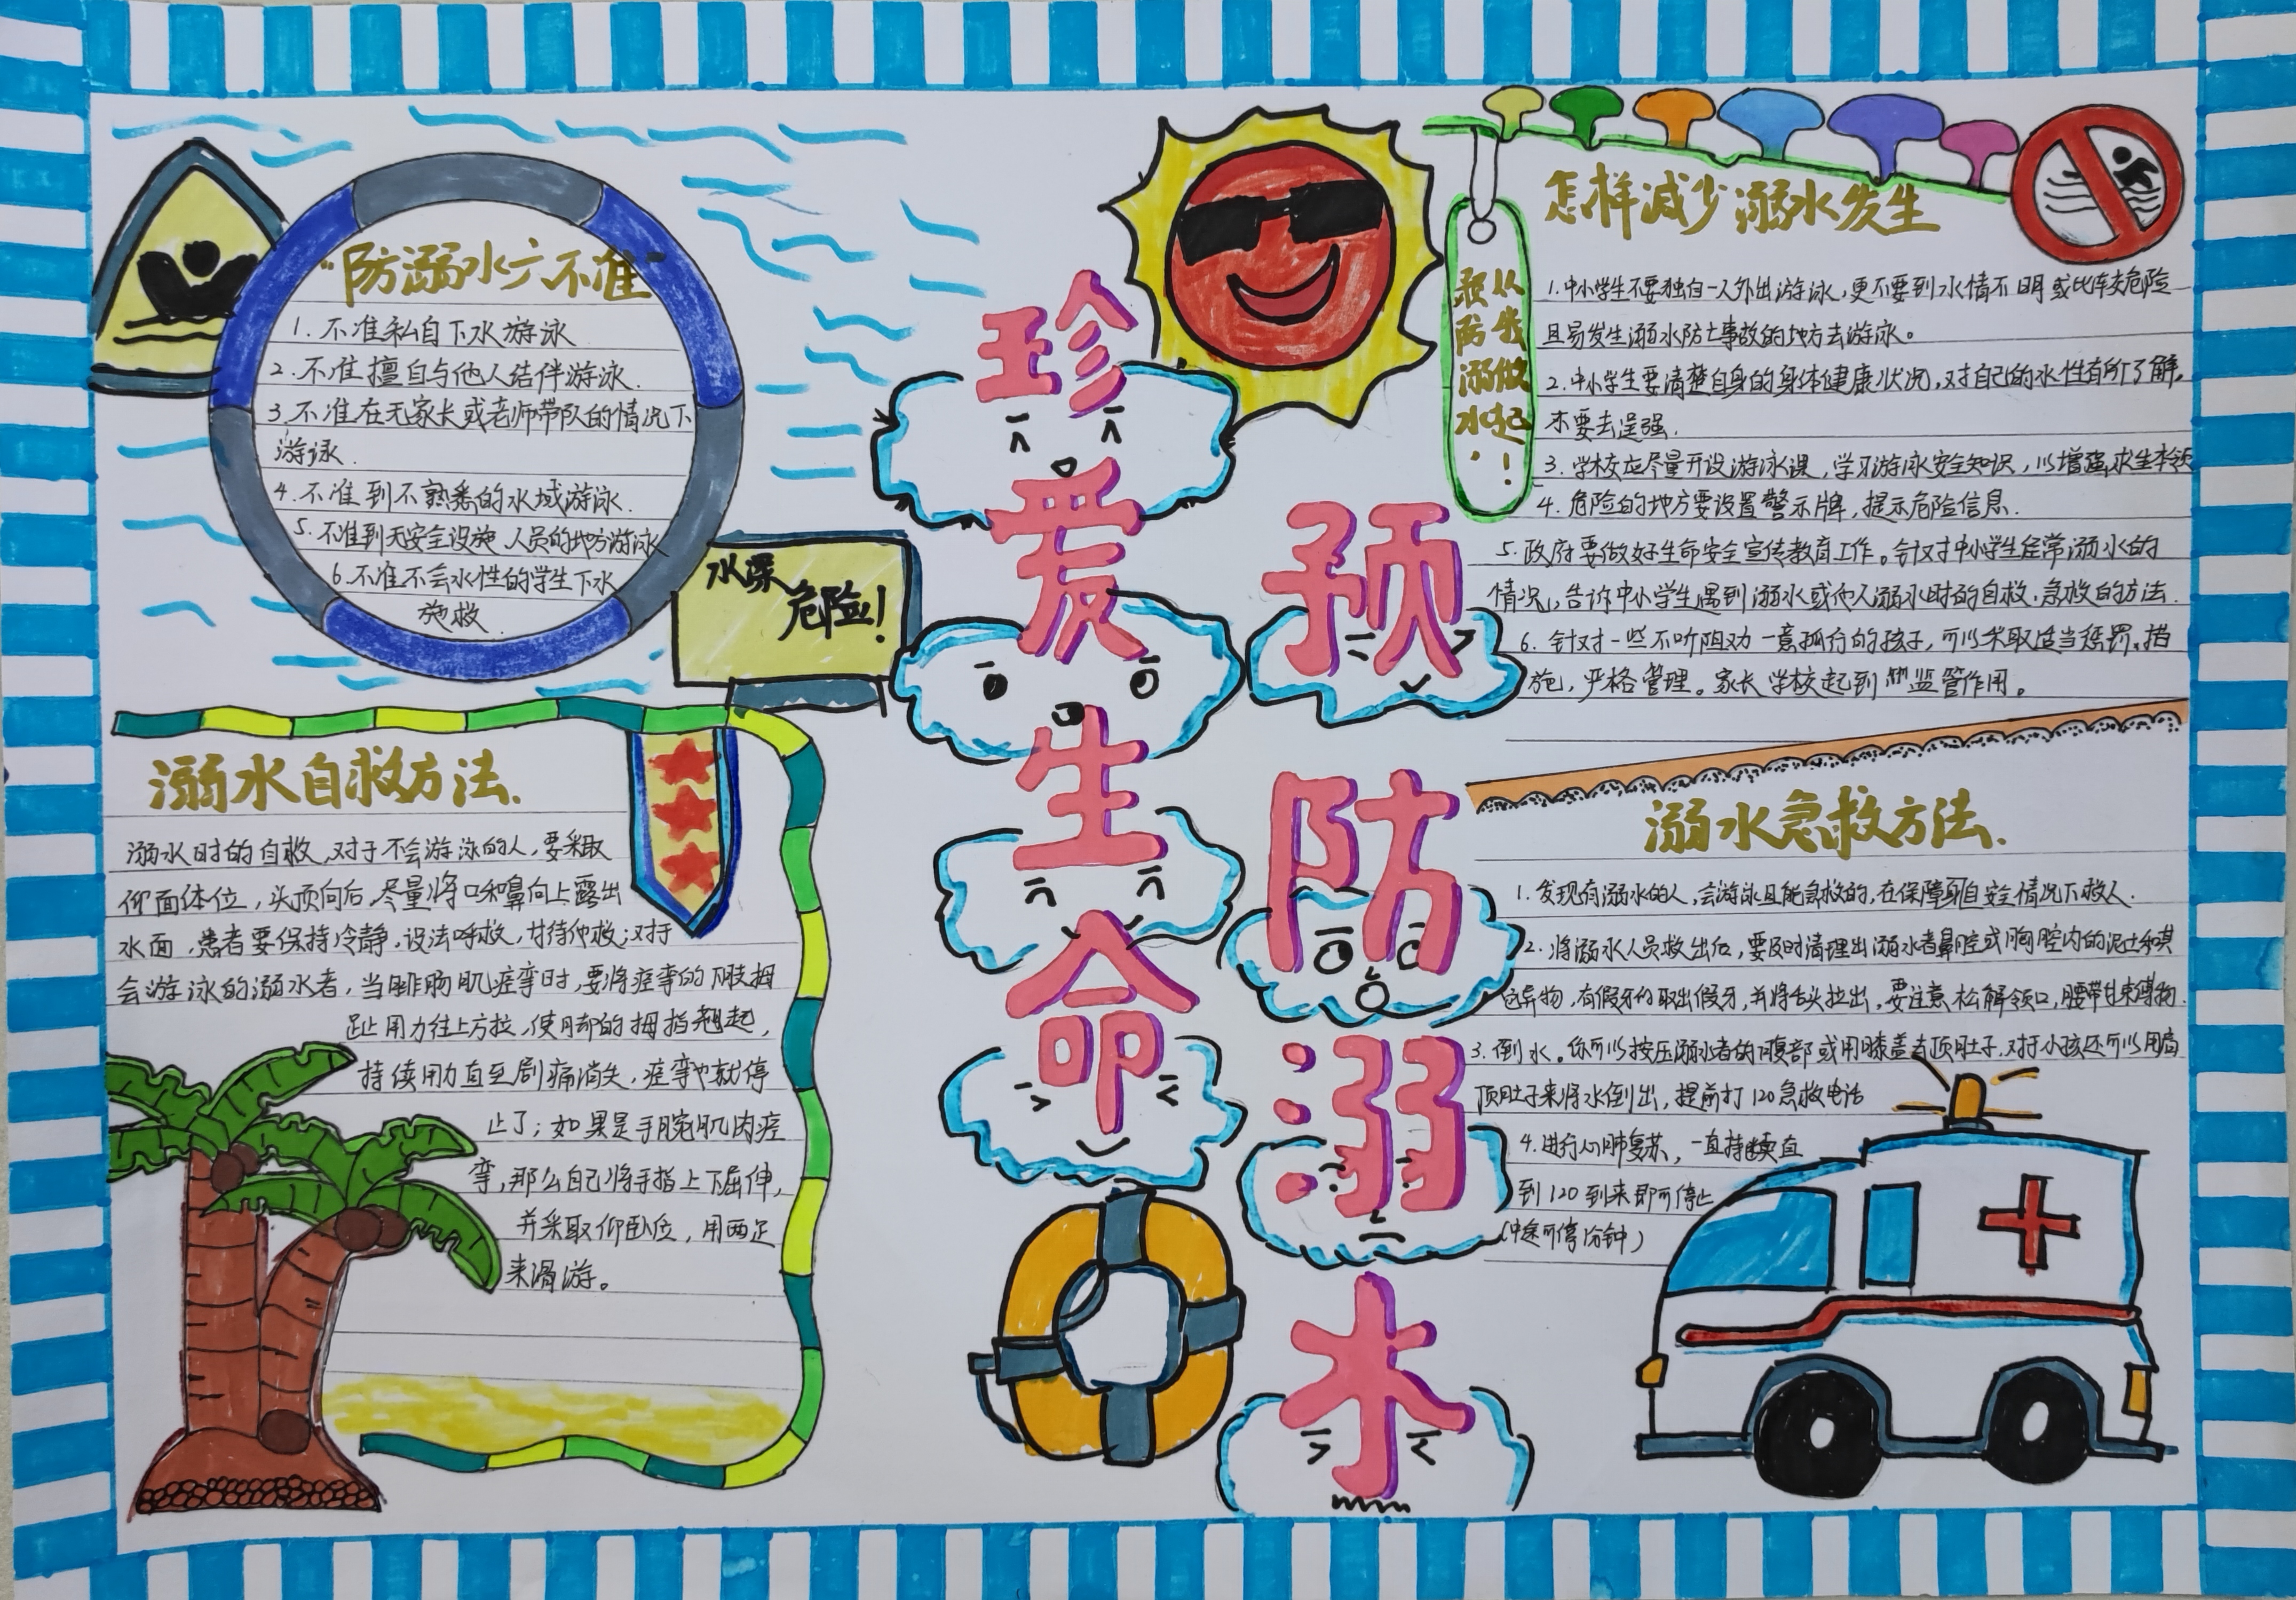 “防溺水六不准”
1. 不准私自下水游泳
2. 不准擅自与他人结伴游泳.
3. 不准在无家长或老师带队的情况下
游泳.
4. 不准到不熟悉的水域游泳.
5. 不准到无安全设施、人员的地方游泳
6. 不准不会水性的学生下水
施救
水深
危险!
溺水自救方法.
溺水时的自救,对于不会游泳的人,要采取
仰面体位,头顶向后,尽量将口和鼻向上露出
水面,患者要保持冷静,设法呼救,
会游泳的溺水者,当腓肠肌痉挛时,要将痉挛的下肢拇
趾用力往上方拉,使脚的拇指翘起,
持续用力直至剧痛消失,痉挛也就停
止了;如果是手腕肌肉痉
挛,那么自己将手指上下屈伸,
并采取仰卧位,用两足
来滑游。
珍爱生命
预防溺水
从我做起!
预防溺水,
怎样减少溺水发生
1. 中小学生不要独自一人外出游泳,更不要到水情不明或比较危险
且易发生溺水防亡事故的地方去游泳。
2. 中小学生要清楚自身的身体健康状况,对自己的水性有所了解,
不要去逞强.
3. 学校应尽量开设游泳课,学习游泳安全知识,以增强求生本领
4. 危险的地方要设置警示牌,提示危险信息.
5. 政府要做好生命安全宣传教育工作。针对中小学生经常溺水的
情况,告诉中小学生遇到溺水或他人溺水时的自救、急救的方法.
6. 针对一些不听阻劝一意孤行的孩子,可以采取适当惩罚措
施,严格管理。家长学校起到监管作用。
溺水急救方法.
1. 发现有溺水的人,会游泳且能急救的,在保障自安全情况下救人.
2. 将溺水人员救出后,要及时清理出溺水者鼻腔或胸腔内的泥土和其
它异物,有假牙的取出假牙,并将舌头拉出,要注意松解领口,腰带
3. 倒水。你可以按压溺水者的腹部或用膝盖去顶肚子,对于小孩还可以用肩
顶肚子来将水倒出,提前打120急救电话
4. 进行心肺复苏,一直持续直
到120到来即可停止
(中途可停 分钟)